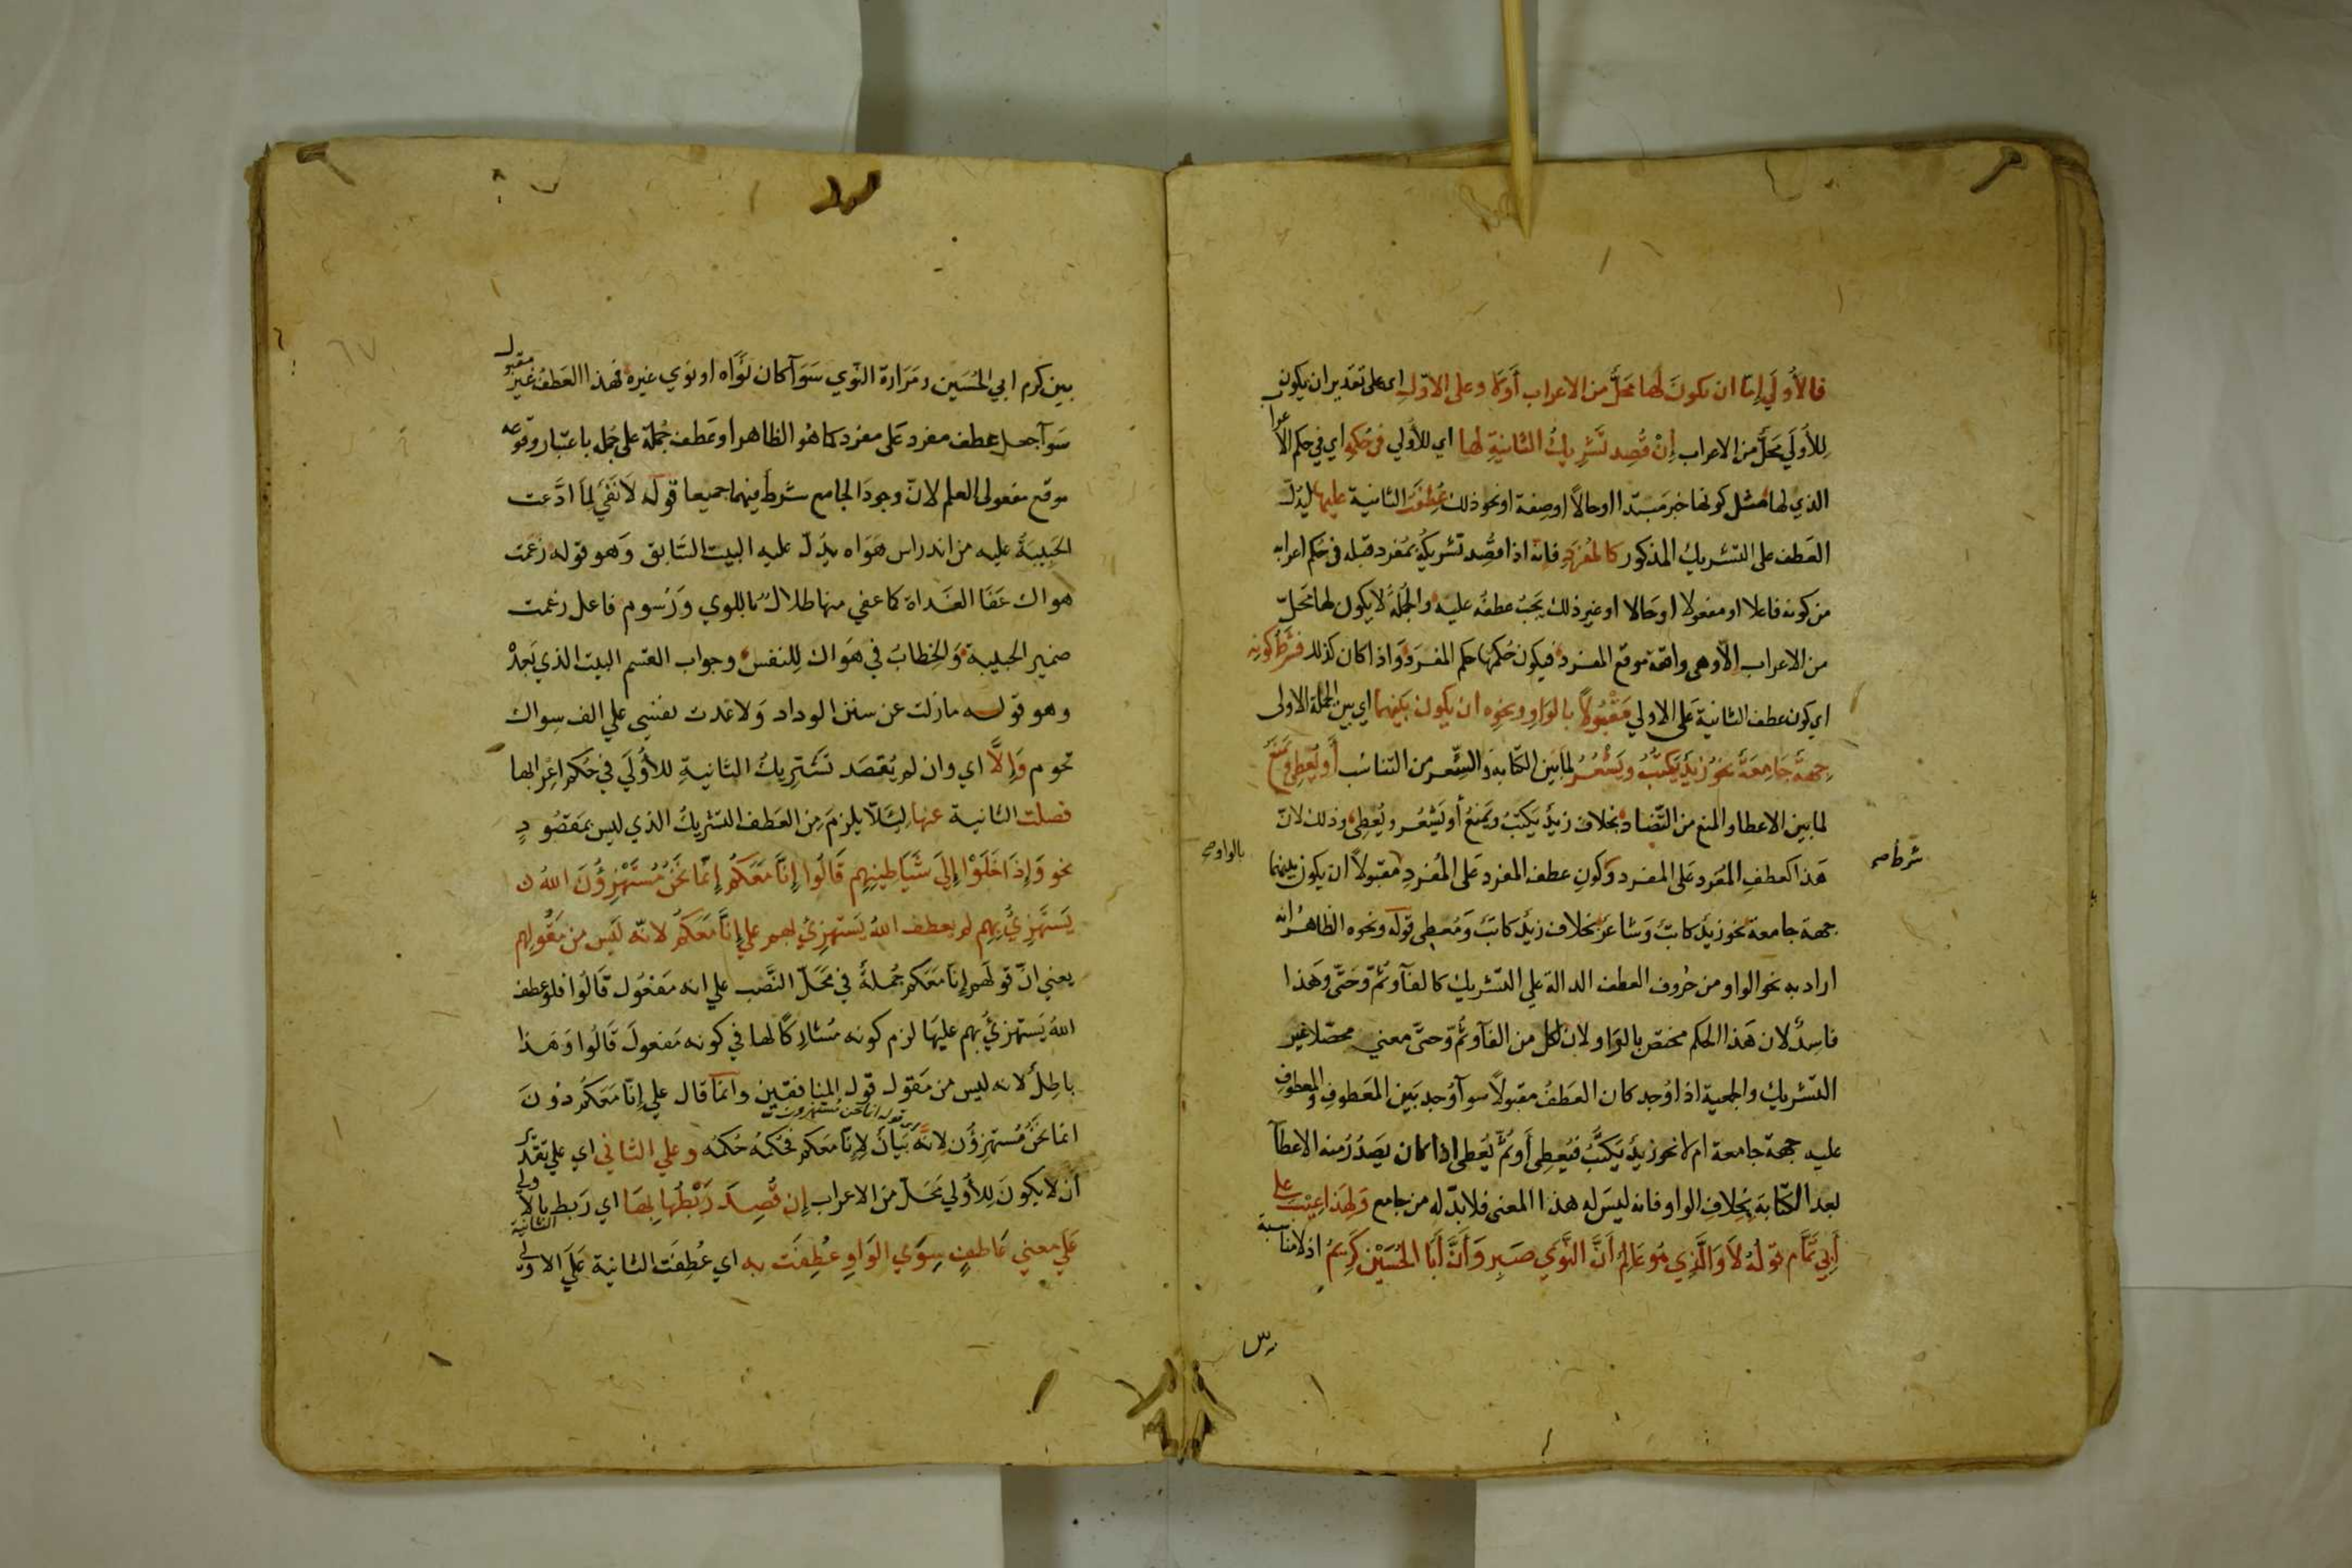 فالأولَي إمّا ان يكونَ لها محَلَّ من الاعراب أَولا وعلى الاوّلِ اي على تقدير ان يكون
لِلأولَي محَلَّ من الاعراب إنْ قُصِد تَشْرِيكُ الثانيةِ لها اي للأولي في حُكمِهِ اي في حكم الاعراب
الذي لها مثل كونها خبر مَبتدا اوحالاً اوصفة اونحو ذلك عُطِفَت الثانية عليها ليدُلّ
العَطف على التشريك المذكور كالمُفرَدِ فانّه اذا قصُد تَشريكُهُ بمُفرد قبله في حُكم اعرابه
من كونه فاعلا او مفعولا اوحَالا اوغير ذلك يَجبُ عطفُه عليه والجُملةُ لا يكون لها محَلّ
من الاعراب الاّ وهى واقعة موقع المفرد فيكون حُكمُها حكم المفرَد وَاذا كان كذلك فشَرْطُ كونِه
اي كون عطف الثانية على الاولي مَقْبُولاً بالوَاوِ ونحوِه ان يكون بَينهما اي بين الجملة الاولى
جِهةٌ جَامِعَةٌ نحوُ زيدٌ يَكتبُ ويَشْعُرُ لما بَين الكتابة والشِّعر من التناسُب أَو يُعطِي وَيَمنَعُ
لما بين الاعطا والمنع من التّضاد بخلاف زيدٌ يَكتبُ ويَمنَعُ أو يَشْعُر ويُعْطِى وذلك لانّ
هَذا كعطفِ المُفَرد عَلى المفرد وَكونِ عطف المفرد عَلى المُفردِ مقبولاً ان يكون بينهما
شرط صح
بالواو صح
جهة جامعة نحو زيدٌ كاتبٌ وَشاعرٌ بخلاف زيدٌ كاتبٌ وَمُعطِي قوله ونحوه الظاهرُ انه
اراد به نحو الواو من حُروف العطف الدالة علي التشريك كالفآ وثُمَّ وحَتّى وهَذا
فاسِدٌ لان هَذا الحكم مختص بالوَاو لان لكل من الفآ وثمّ وحتّى معني محصّلا غير
التّشريك والجمعية اذا وُجد كان العَطفُ مقبولاً سوآ وُجد بَين المَعطوفِ والمعطوفِ
عليه جهة جامعة ام لا نحو زيدٌ يَكتُبُ فيُعطِى أَو ثُمَّ يُعطِى اذا كان يَصدُرُ منه الاعطآ
بعد الكتابَة بخِلافِ الواو فانه ليسَ له هذا المعنى فلا بدّ له من جامع وَلهذا عِيْبَ علي
أَبي تمّام قولُهُ لاَ وَالَّذِي هُو عَالِمٌ أنَّ النَّوَي صَبِر وَأَنَّ أَبَا الحُسَيْن كَرِيمُ اذ لا مناسبة
بين كرم ابي الحُسَين ومَرَارة النّوي سَوَآ كان نَوَاه او نوي غيره فهذا العَطفُ غير مقبول
سَوآ جعل عطف مفرد عَلى مفرد كما هُو الظاهر او عَطف جُملة على جُمله باعتبار وقوعه
موقع مفعولى العلم لانّ وجودَ الجامع شرط فيهما جميعا قوله لاَ نَفْيٌ لِمَا ادَّعت
الحَبِيبَةُ عليه من اندراس هَوَاه يدُلّ عليه البيت السّابق وَهو قوله زعَمت
هواك عَفَا الغَداة كما عفي منها طلالٌ باللوي وَرُسوم فاعل زعمت
ضمير الحبيبة والخطابُ في هَواك لِلنفس وجواب القسم البيت الذي بَعدْ
وهو قوله مازلت عن سنن الوداد وَلا غدت نفسي علي الف سِواك
تحوم وَإلاَّ اي وان لم يُقصَد تَشْرِيكُ الثانيةِ للأوُلَي في حُكم اعرابها
فصلت الثانية عنها لِئلاّ يلزمَ مِن العَطف التشريكُ الذي ليس بمَقصُودٍ
نحو وَإذَا خَلَوْا إلَى شَيَاطِينِهِم قَالُوا إنَّا مَعَكُم إنَّمَا نَحْنُ مُستَهْزِؤُنَ اللهُ
يَستَهْزِئُ بِهِم لم يعطف اللهُ يَستهزِئ بهم علي إنَّا مَعَكُم لانّه لَيس من مَقُولِهِم
يعني انّ قولَهم إنا مَعَكم جُملةٌ في مَحَلّ النَّصْب علي انه مَفعُول قَالُوا فلو عطف
اللهُ يَستهزئُ بهم عليهَا لزم كونه مُشارِكًا لها في كونه مَفعولَ قَالُوا وَهَذا
باطِلٌ لانه ليس من مَقول قول المنافقين وانمّا قال علي إنّا مَعَكُم دُونَ
قوله انما نحن مستهزؤن
انما نَحنُ مُستهزِؤُن لانّهُ بَيَانٌ لإنّا معَكم فحُكمُه حُكمُه وعلي الثاني اي علي تقدير
أن لا يكونَ لِلأولي مَحَلّ من الاعراب إن قُصِدَ رَبْطُهَا بِهَا اي رَبط الثانية بالاولي
عَلي معني عَاطفٍ سِوَي الوَاوِ عُطِفَت به اي عُطِفَت الثانية عَلَى الاولي